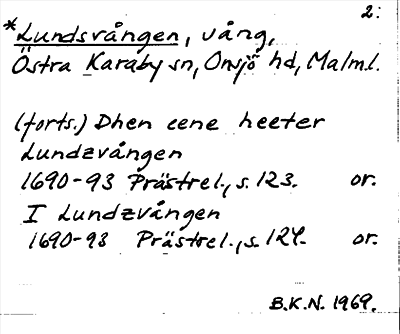 2:
*Lundsvången, vång,
Östra Karaby sn, Onsjö hd, Malm.l.
(forts.) Dhen eene heeter
Lundzvången
1690-93 Prästrel., s. 123. or.
I Lundzvången
1690-93 Prästrel., s. 124. or.
B.K.N. 1969.